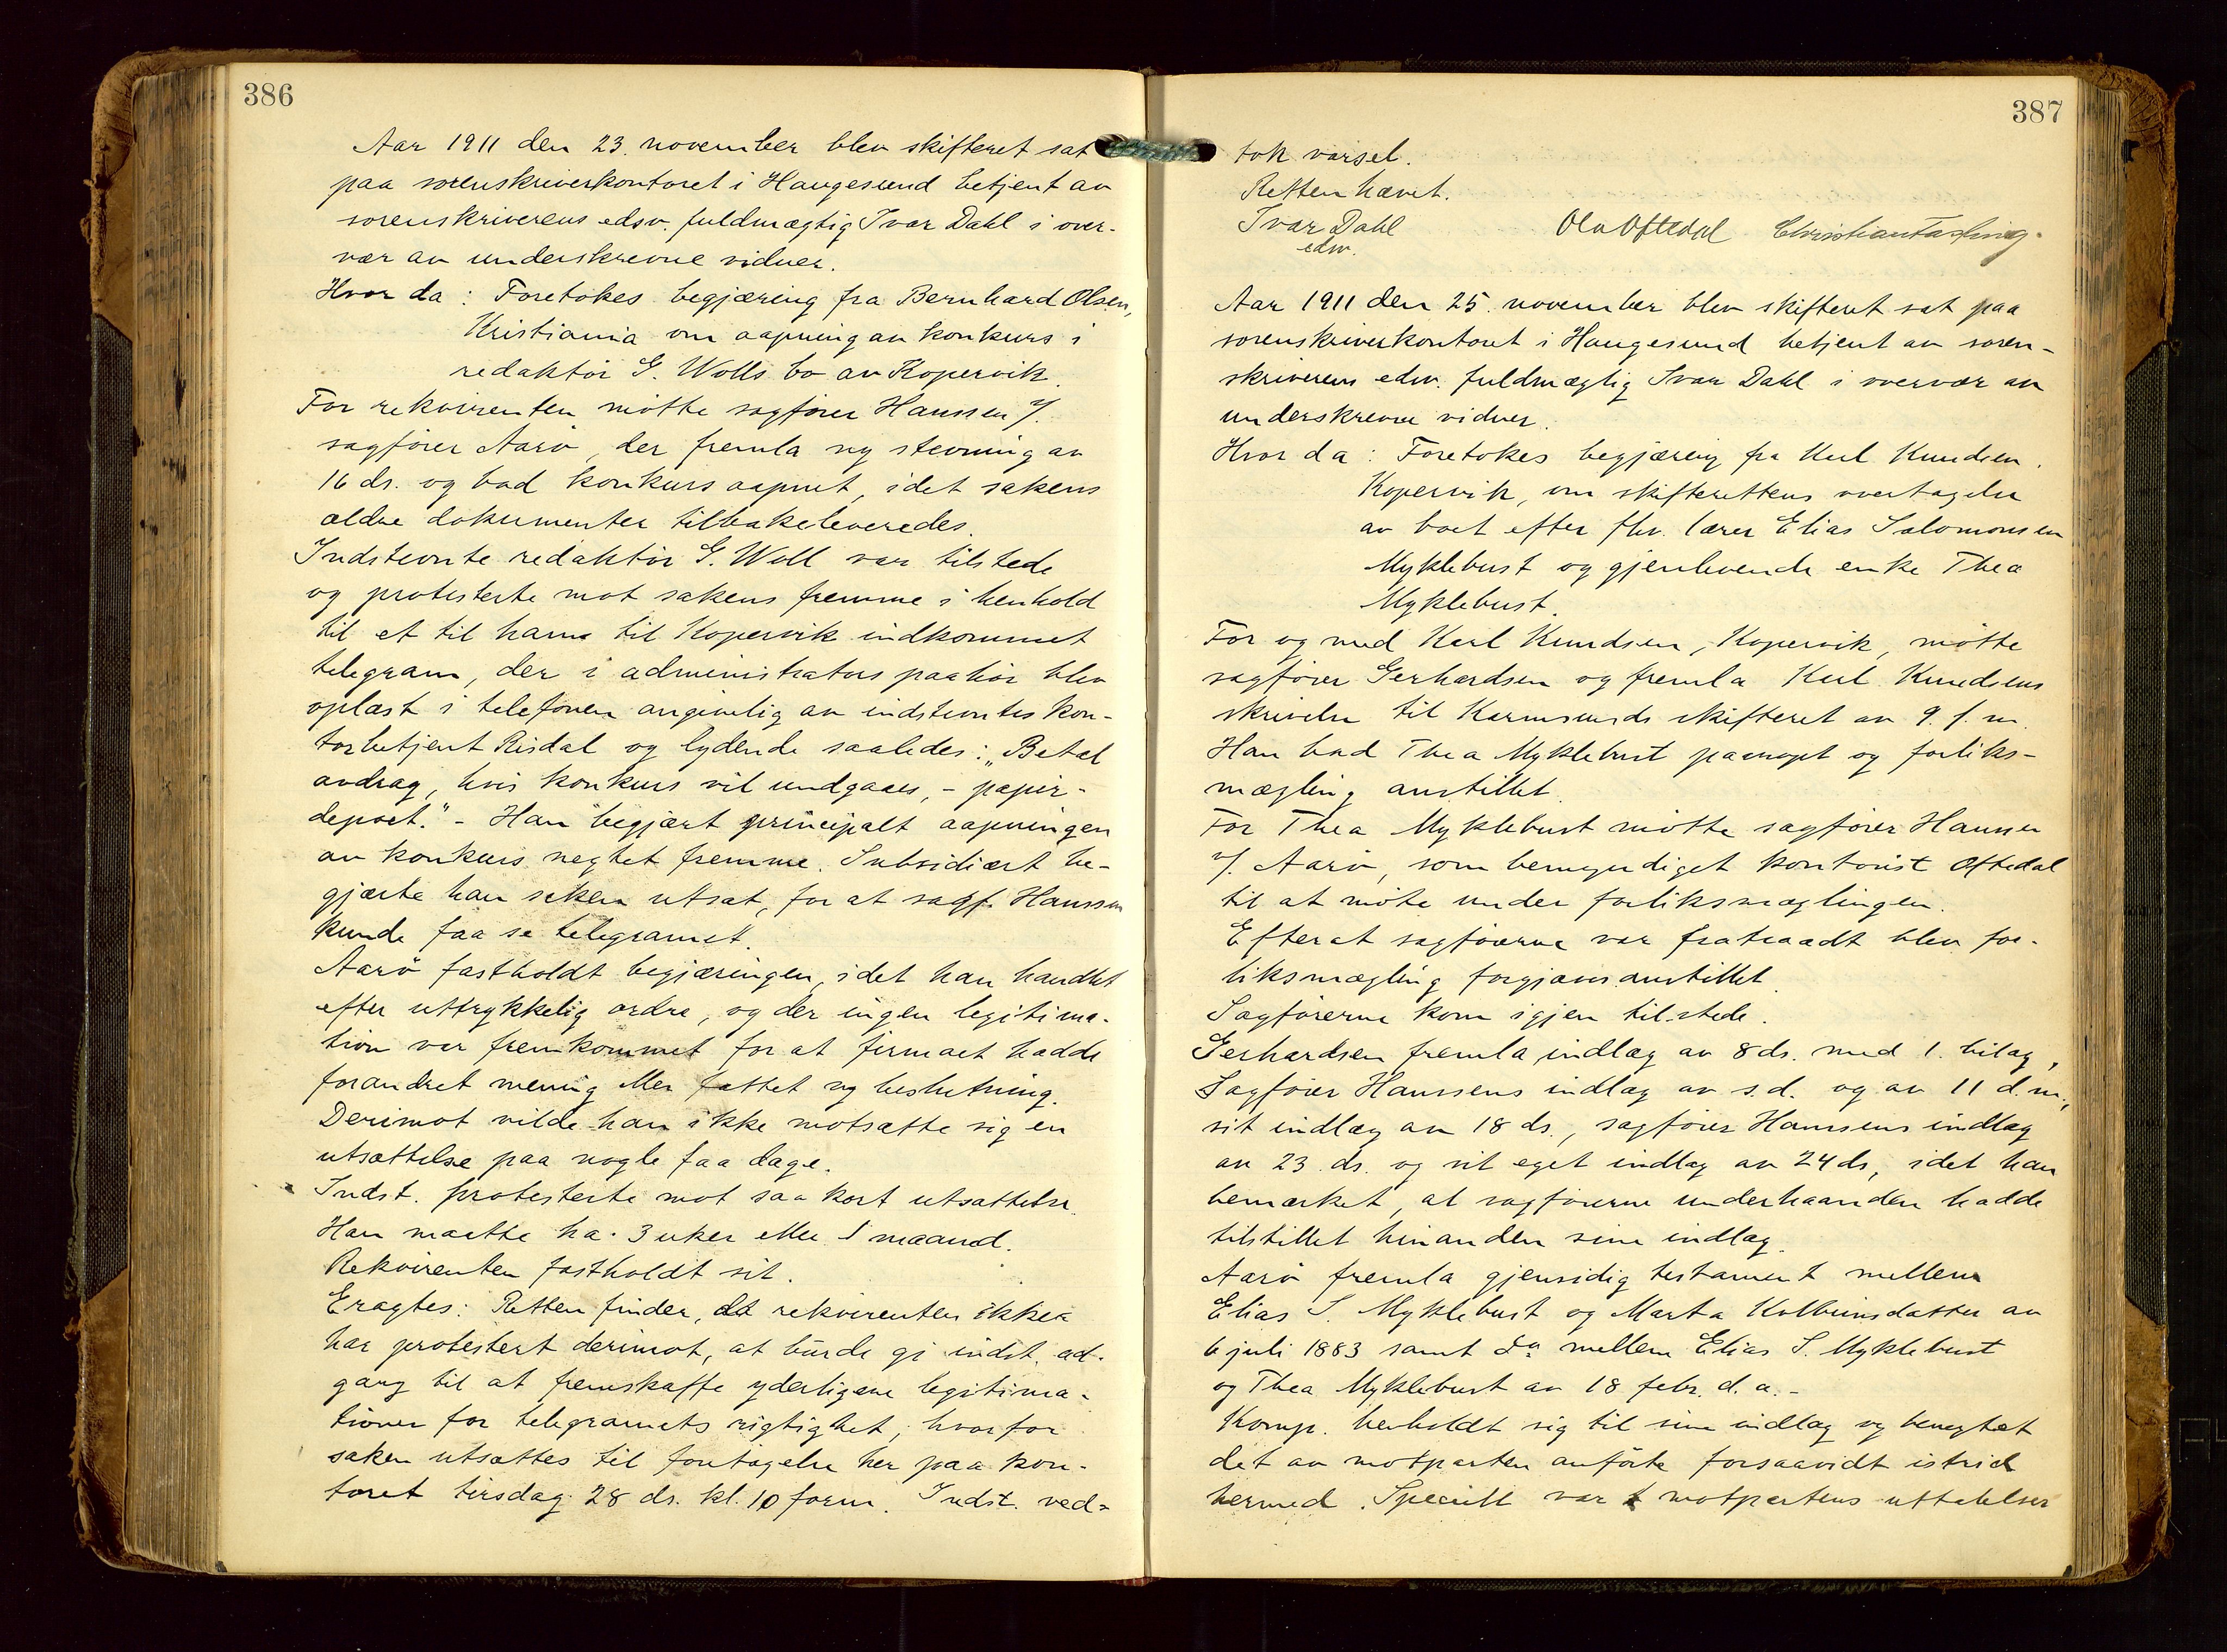 386
Aar 1911 den 23. november blev skifteret sat
paa sorenskriverkontoret i Haugesund betjent av
sorenskriverens edsv. fuldmægtig Ivar Dahl i over-
vær av underskrevne vidner.
Hvor da: Foretokes begjæring fra Bernhard Olsen,
Kristiania om aapning av konkurs i
redaktør G. Wolls bo av Kopervik.
For rekvirenten møtte sagfører Hanssen v/
sagfører Aarø, der fremla ny stevning av
16 ds. og bad konkurs aapnet, idet sakens
ældre dokumenter tilbakeleveredes.
Indstevnte redaktør G. Woll var tilstede
og protesterte mot sakens fremme i henhold
til et til ham til Kopervik indkommet
telegram, der i administrators paahør blev
oplæst i telefonen angivelig av indstevntes kon-
torbetjent Risdal og lydende saaledes: „Betal
avdrag, hvis konkurs vil undgaaes, - papir-
depoet." - Han begjært principalt aapningen
av konkurs negtet fremme. Subsidiært be-
gjærte han saken utsat, for at sagf. Hanssen
kunde faa se telegramet.
Aarø fastholdt begjæringen, idet han handlet
efter uttrykkelig ordre, og der ingen legitima-
tion var fremkommet for at firmaet hadde
forandret mening eller fattet ny beslutning.
Derimot vilde han ikke motsætte sig en
utsættelse paa nogle faa dage.
Indst. protesterte mot saa kort utsættelse.
Han maatte ha. 3 uker eller 1 maaned.
Rekvirenten fastholdt sit.
Eragtes: Retten finder, at rekvirenten ikke
har protestert derimot, at burde gi indst. ad-
gang til at fremskaffe yderligere legitima-
tioner for telegramets rigtighet, hvorfor
saken utsættes til foretagelse her paa kon-
toret tirsdag 28 ds. kl. 10 form. Indst. ved-
387
tok varsel.
Retten hævet.
Ivar Dahl
edsv.
Ola Oftedal Christian
Aar 1911 den 25. november blev skifteret sat paa
sorenskriverkontoret i Haugesund betjent av soren-
skriverens edsv. fuldmægtig Ivar Dahl i overvær av
underskrevne vidner.
Hvor da: Foretokes begjæring fra Karl Knudsen,
Kopervik, om skifterettens overtagelse
av boet efter fhv. lærer Elias Salomonsen
Myklebust og gjenlevende enke Thea
Myklebust.
For og med Karl Knudsen, Kopervik, møtte
sagfører Gerhardsen og fremla Karl Knudsens
skrivelse til Karmsunds skifteret av 9. f. m.
Han bad Thea Myklebust paaropt og forliks-
mægling anstillet.
For Thea Myklebust møtte sagfører Hanssen
v/. Aarø, som bemyndiget kontorist Oftedal
til at møte under forliksmæglingen.
Efterat sagførerne var fratraadt blev for-
liksmægling forgjæves anstillet.
Sagførerne kom igjen tilstede.
Gerhardsen fremla indlæg av 8 ds. med 1. bilag,
Sagfører Hanssens indlæg av s.d. og av 11 d.m.,
sit indlæg av 18 ds., sagfører Hanssens indlæg
av 23. ds. og sit eget indlæg av 24 ds, idet han
bemærket, at sagførerne underhaanden hadde
tilstillet hinanden sine indlæg.
Aarø fremla gjensidig testament mellem
Elias S. Myklebust og Marta Kolbeinsdatter av
6 juli 1883 samt do mellem Elias S. Myklebust
og Thea Myklebust av 18 febr. d. a. -
Komp. henholdt sig til sine indlæg og benegtet
det av motparten anførte forsaavidt i strid
hermed. Specielt var motpartens uttalelser